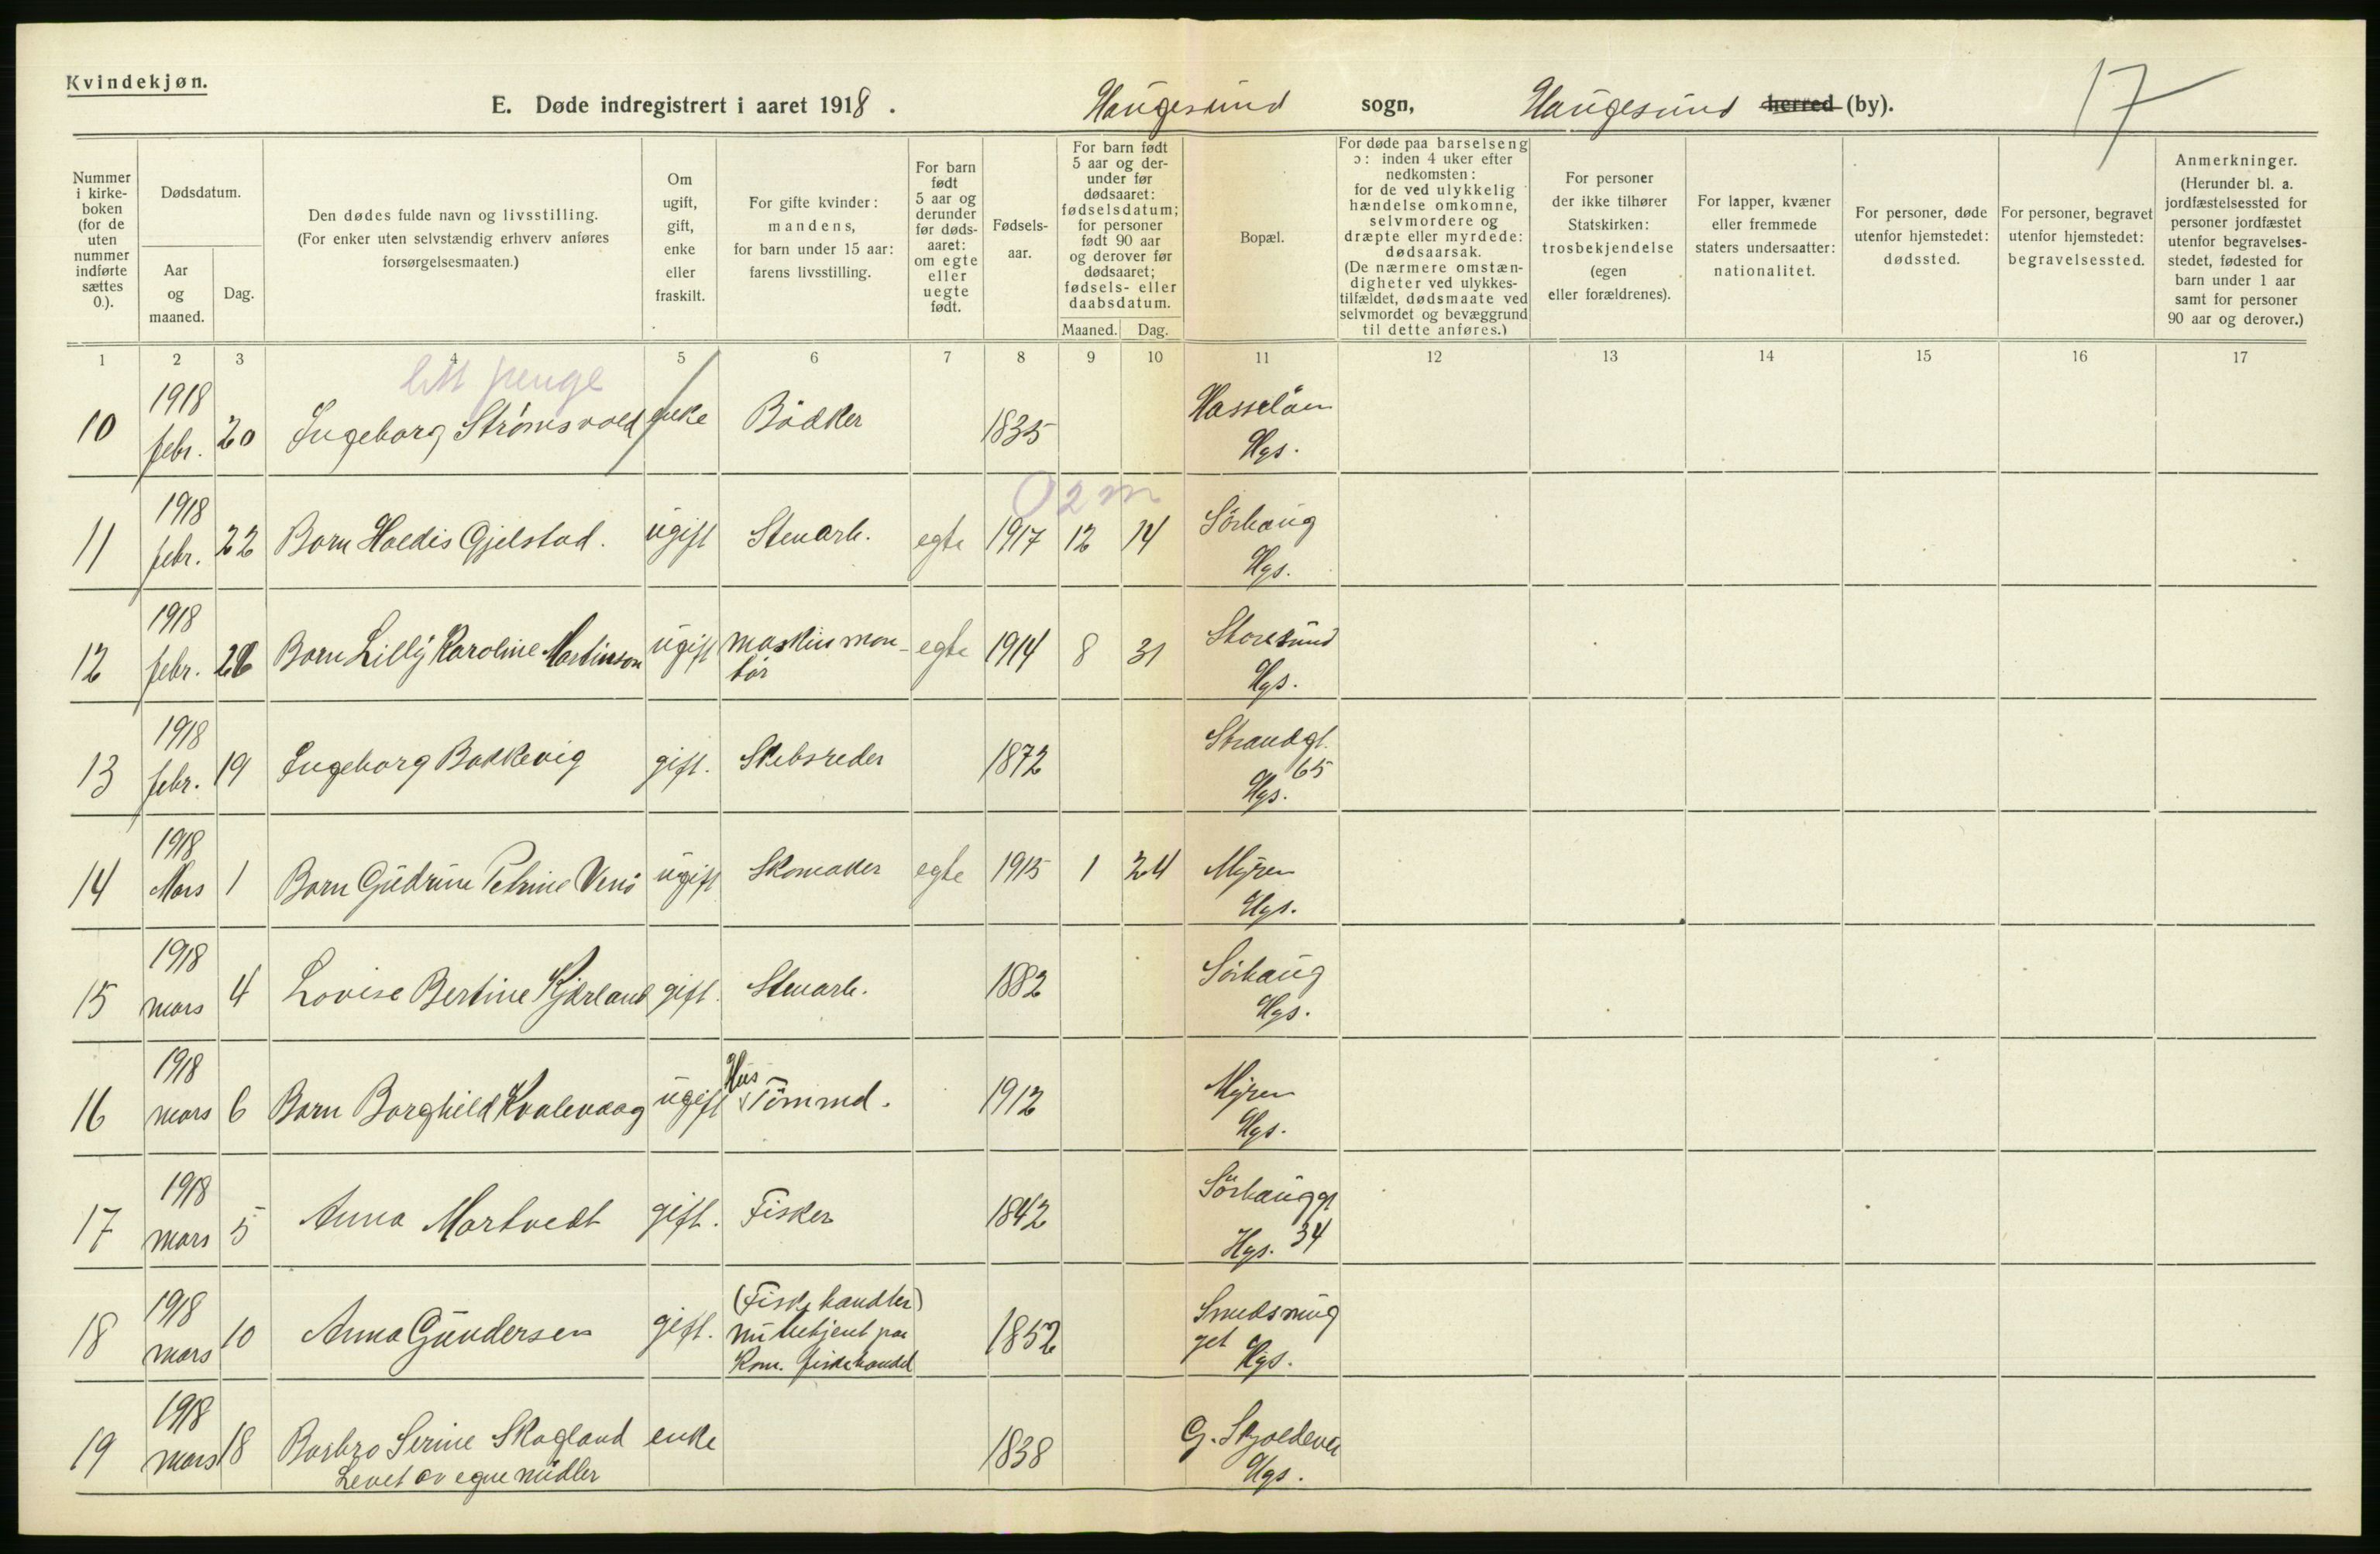 Kvindekjøn.
E. Døde indregistrert i aaret 1918. Haugesund sogn, Haugesund herred (by). 17
Nummer i kirke-boken (for de uten nummer indførte sættes 0.).
Dødsdatum.
Aar og maaned.
Dag.
Den dødes fulde navn og livsstilling.
(For enker uten selvstændig erhverv anføres
forsørgelsesmaaten.)
Om ugift, gift, enke eller fraskilt.
For gifte kvinder:
mandens,
for barn under 15 aar:
farens livsstilling.
For barn født 5 aar og derunder før døds-aaret: om egte eller uegte født.
Fødsels-aar.
For barn født 5 aar og der-under før dødsaaret: fødselsdatum; for personer født 90 aar og derover før dødsaaret; fødsels- eller daabsdatum.
Maaned.
Dag.
Bopæl.
For døde paa barselseng ɔ: inden 4 uker efter nedkomsten: for de ved ulykkelig hændelse omkomne, selvmordere og dræpte eller myrdede: dødsaarsak. (De nærmere omstæn-digheter ved ulykkes-tilfældet, dødsmaate ved selvmordet og bevæggrund til dette anføres.)
For personer der ikke tilhører Statskirken: trosbekjendelse (egen eller forældrenes).
For lapper, kvæner eller fremmede staters undersaatter: nationalitet.
For personer, døde utenfor hjemstedet: dødssted.
For personer, begravet utenfor hjemstedet: begravelsessted.
Anmerkninger.
(Herunder bl. a. jordfæstelsessted for personer jordfæstet utenfor begravelses-stedet, fødested for barn under 1 aar samt for personer 90 aar og derover.)
1 2 3 4 5 6 7 8 9 10 11 12 13 14 15 16 17
10 1918 febr. 20 Ingeborg Strømsvold enke Bødker 1835 Hasseløen Hgs.
02 m
11 1918 febr. 22 Barn Hoedis Gjelstad. ugift Stenarb. egte 1917 12 14 Sørhaug Hgs.
12 1918 febr. Barn Lilly Karoline Martinson ugift maskinmon-tør egte 1914 8 31 Storesund Hgs.
13 1918 febr. 19 Ingeborg Bakkevig gift. Skibsreder 1872 Strandgt. 65 Hgs.
14 1918 Mars 1 Barn Gudrun Petrine ugift Skomaker egte 1915 1 24 Myren Hgs.
15 1918 mars 4 Lovise Bertine Kjærland gift. Stenarb. 1882 Sørhaug Hgs.
16 1918 mars 6 Barn Borghild Kvalevaag ugift Hus Tømmd. 1912 Myren Hgs.
17 1918 mars 5 Anna Martvedt gift. Fisker 1842 Sørhauggt 34 Hgs.
18 1918 mars 10 Anna Gundersen gift. (Fiskehandler) nu betjent paa Kom. fiskehandel 1852 Smedsmug get Hgs.
19 1918 mars 18 Barbro Serine Skogland enke 1838 G. Skjoldevei Hgs.
Levet av egne midler